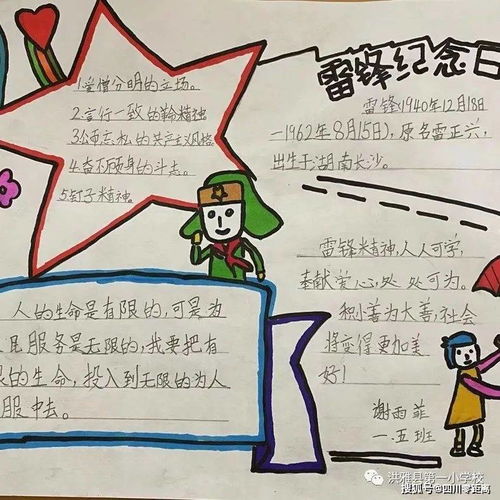 雷锋纪念日
1.爱憎分明的立场。
2.言行一致的革命精神
3.公而忘私的共产主义风格
4.奋不顾身的斗志。
5.钉子精神。
雷锋(1940年12月18日
—1962年8月15日),原名雷正兴,
出生于湖南长沙。
人的生命是有限的,可是为
人民服务是无限的,我要把有
限的生命,投入到无限的为人
服中去。
雷锋精神,人人可学,
奉献爱心,处处可为。
积小善为大善,社会
将变得更加美
好!
谢雨菲
一.五班
洪雅县第一小学校
搜狐号@四川零距离